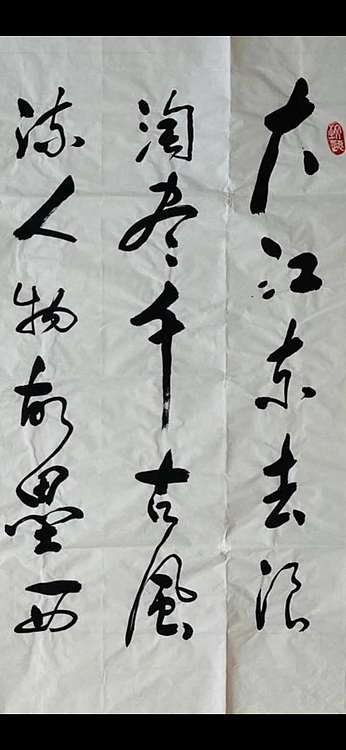 大江东去浪
淘尽千古風
流人物故壘西